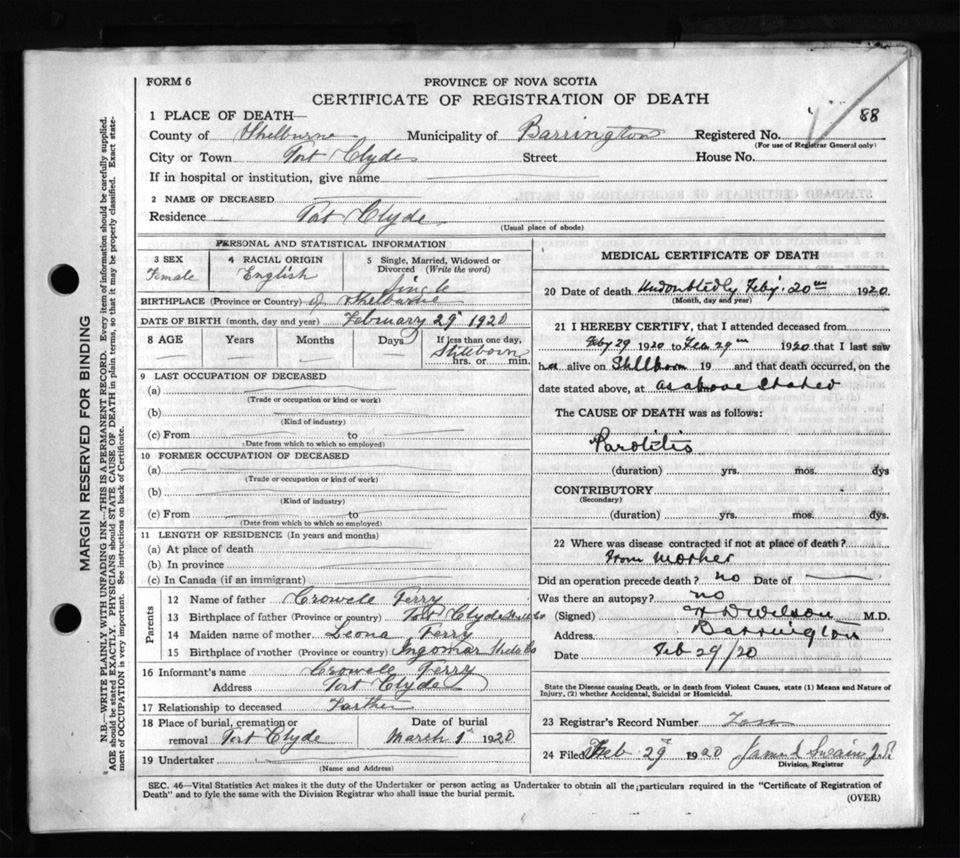 FORM 6
PROVINCE OF NOVA SCOTIA
CERTIFICATE OF REGISTRATION OF DEATH
88
1 PLACE OF DEATH—
County of Shelburne Municipality of Barrington Registered No.
(For use of Registrar General only)
City or Town Port Clyde Street House No.
If in hospital or institution, give name
2 NAME OF DECEASED
Residence Port Clyde
(Usual place of abode)
PERSONAL AND STATISTICAL INFORMATION
3 SEX
Female
4 RACIAL ORIGIN
English
5 Single, Married, Widowed or Divorced (Write the word)
Single
BIRTHPLACE (Province or Country) Shelburne
DATE OF BIRTH (month, day and year) February 29 1920
8 AGE Years Months Days If less than one day,
Stillborn
hrs. or min.
9 LAST OCCUPATION OF DECEASED
(a)
(Trade or occupation or kind or work)
(b)
(Kind of industry)
(c) From to
(Date from which to which so employed)
10 FORMER OCCUPATION OF DECEASED
(a)
(Trade or occupation or kind of work)
(b)
(Kind of industry)
(c) From to
(Date from which to which so employed)
11 LENGTH OF RESIDENCE (In years and months)
(a) At place of death
(b) In province
(c) In Canada (if an immigrant)
Parents
12 Name of father Crowell Perry
13 Birthplace of father (Province or country) Port Clyde Shel Co
14 Maiden name of mother Leona Perry
15 Birthplace of mother (Province or country) Ingomar Shel Co
16 Informant's name Crowell Perry
Address Port Clyde
17 Relationship to deceased Farther
18 Place of burial, cremation or removal Port Clyde
Date of burial
March 1st 1920
19 Undertaker
(Name and Address)
MEDICAL CERTIFICATE OF DEATH
20 Date of death Undoubtedly Feby. 20th 1920
(Month, day and year)
21 I HEREBY CERTIFY, that I attended deceased from
Feby 29 1920 to Feb 29th 1920 that I last saw
her alive on Stillborn 19 and that death occurred, on the
date stated above, at as above stated
The CAUSE OF DEATH was as follows:
Parotitis
(duration) yrs. mos. dys
CONTRIBUTORY
(Secondary)
(duration) yrs. mos. dys.
22 Where was disease contracted if not at place of death?
From mother
Did an operation precede death? no Date of
Was there an autopsy? no
(Signed) H D Wilson M.D.
Address Barrington
Date Feb 29/20
State the Disease causing Death, or in death from Violent Causes, state (1) Means and Nature of Injury, (2) whether Accidental, Suicidal or Homicidal.
23 Registrar's Record Number
24 Filed Feb 29th 1920
Division, Registrar
SEC. 46—Vital Statistics Act makes it the duty of the Undertaker or person acting as Undertaker to obtain all the particulars required in the "Certificate of Registration of
Death" and to fyle the same with the Division Registrar who shall issue the burial permit.
(OVER)
MARGIN RESERVED FOR BINDING
N.B.—WRITE PLAINLY WITH UNFADING INK—THIS IS A PERMANENT RECORD. Every item of information should be carefully supplied.
AGE should be stated EXACTLY. PHYSICIANS should STATE CAUSE OF DEATH in plain terms, so that it may be properly classified. Exact statement of OCCUPATION is very important. See instructions on back of Certificate.